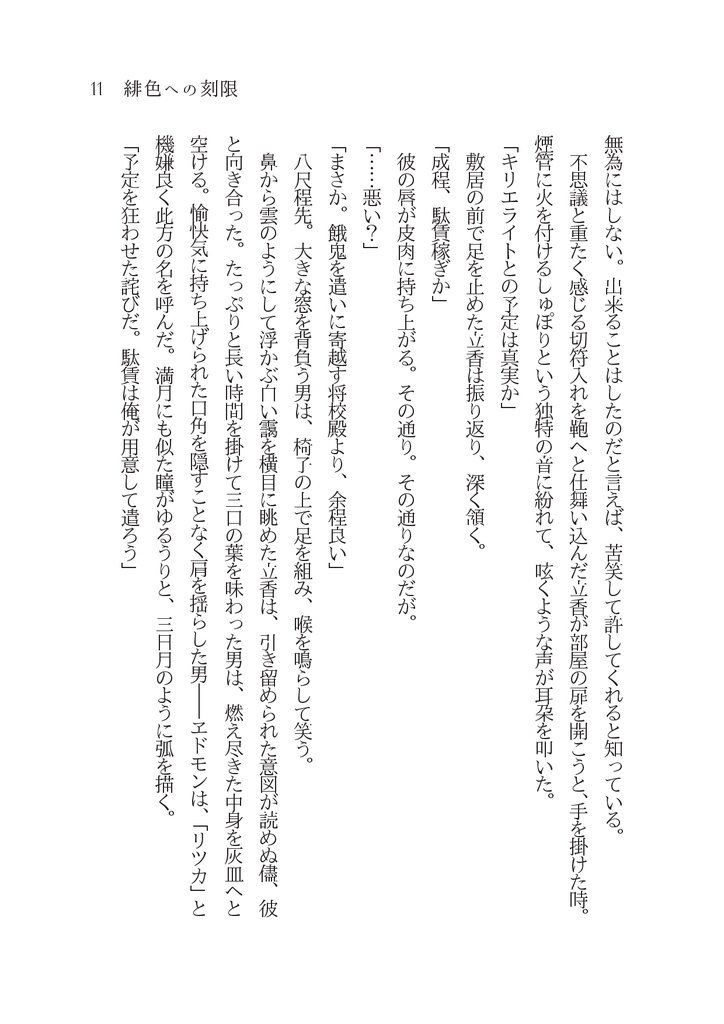 11　緋色への刻限
無為にはしない。出来ることはしたのだと言えば、苦笑して許してくれると知っている。
　不思議と重たく感じる切符入れを鞄へと仕舞い込んだ立香が部屋の扉を開こうと、手を掛けた時。
煙管に火を付けるしゅぽりという独特の音に紛れて、呟くような声が耳朶を叩いた。
「キリエライトとの予定は真実か」
　敷居の前で足を止めた立香は振り返り、深く頷く。
「成程、駄賃稼ぎか」
　彼の唇が皮肉に持ち上がる。その通り。その通りなのだが。
「……悪い？」
「まさか。餓鬼を遣いに寄越す将校殿より、余程良い」
　八尺程先。大きな窓を背負う男は、椅子の上で足を組み、喉を鳴らして笑う。
　鼻から雲のようにして浮かぶ白い靄を横目に眺めた立香は、引き留められた意図が読めぬ儘、彼
と向き合った。たっぷりと長い時間を掛けて三口の葉を味わった男は、燃え尽きた中身を灰皿へと
空ける。愉快気に持ち上げられた口角を隠すことなく肩を揺らした男――ヱドモンは、「リツカ」と
機嫌良く此方の名を呼んだ。満月にも似た瞳がゆるうりと、三日月のように弧を描く。
「予定を狂わせた詫びだ。駄賃は俺が用意して遣ろう」